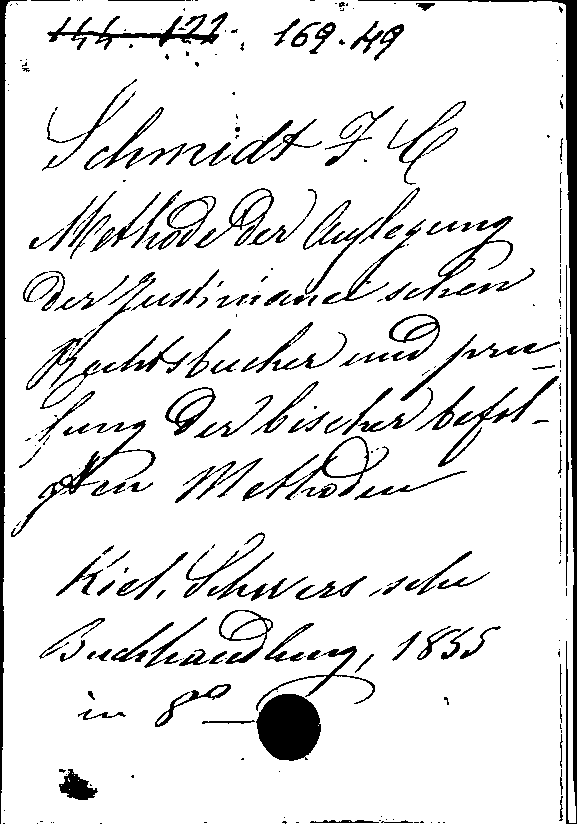 144. 122. 169.49
Schmidt F. C
Methode der Auslegung
der Justinianei schen
Rechtsbucher und pru_
fung der bischer befol-
gten Methoden
Kiel, Schwers sche
Buchhandlung, 1855
in 8º